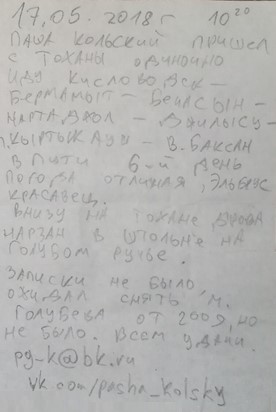 17.05.2018 г 10²⁰
ПАША КОЛЬСКИЙ ПРИШЕЛ
С ТОХАНЫ ОДИНОЧНО
ИДУ КИСЛОВОДСК -
БЕРМАМЫТ - БЕЧАСЫН -
НАРТАДЖОЛ - ДЖИЛЫСУ -
П. КЫРТЫКАУШ - В. БАКСАН
В ПУТИ 6-Й ДЕНЬ
ПОГОДА ОТЛИЧНАЯ, ЭЛЬБРУС
КРАСАВЕЦ.
ВНИЗУ НА ТОХАНЕ ДРОВА
НАРЗАН В ШТОЛЬНЕ НА
ГОЛУБОМ РУЧЬЕ.
ЗАПИСКИ НЕ БЫЛО,
ОЖИДАЛ СНЯТЬ М.
ГОЛУБЕВА ОТ 2009, НО
НЕ БЫЛО. ВСЕМ УДАЧИ.
py-k@bk.ru
vk.com/pasha_kolsky